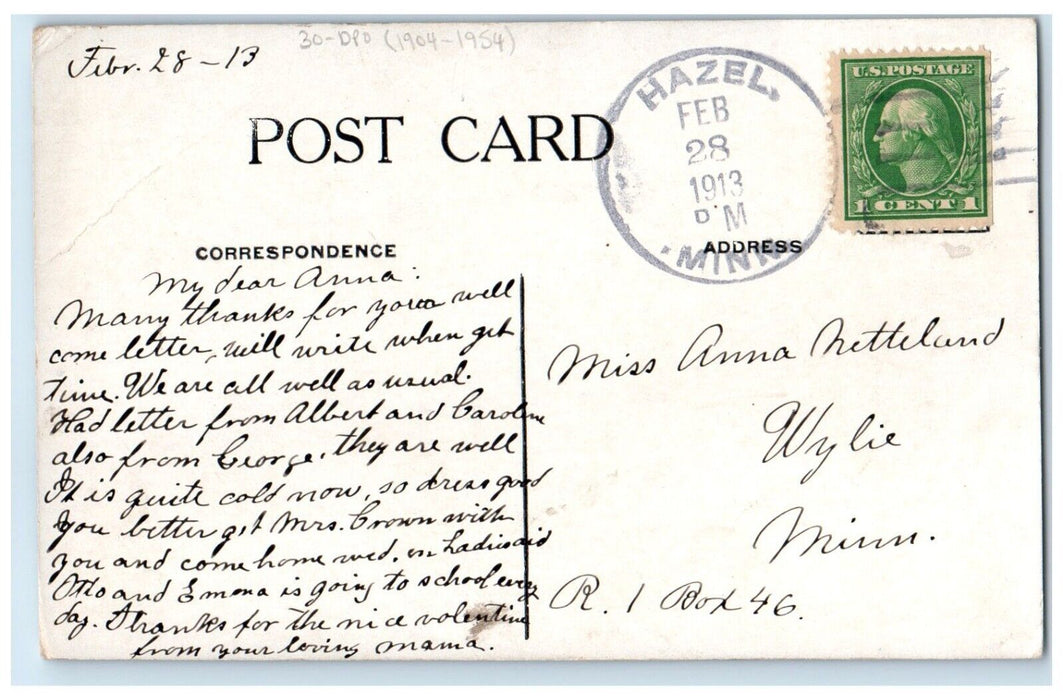 Febr. 28 - 13
30-DPO (1904-1954)
HAZEL,
FEB
28
1913
P M
MINN.
U.S. POSTAGE
1 CENT 1
POST CARD
CORRESPONDENCE
ADDRESS
My dear Anna:
Many thanks for your well
come letter, will write when get
time. We are all well as usual.
Had letter from Albert and Caroline
also from George, they are well
It is quite cold now, so dress good
you better get Mrs. Crown with
you and come home wed. on Ladies aid
Otto and Emma is going to school every
day. Thanks for the nice valentine
from your loving mama.
Miss Anna Netteland
Wylie
Minn.
R. 1 Box 46.